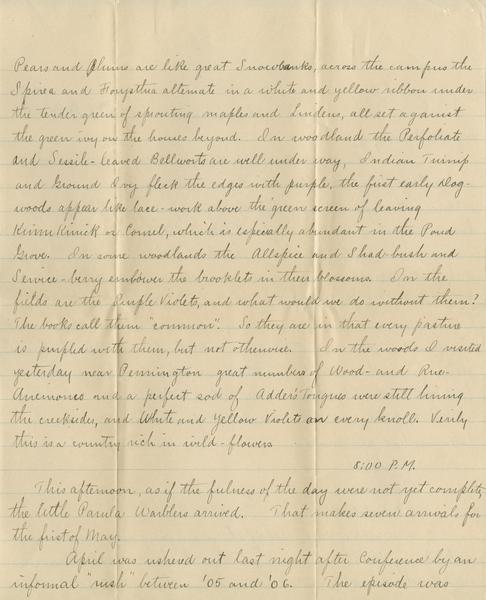 Pears and Plums are like great Snowbanks, across the campus the
Spirea and Forysthia alternate in a white and yellow ribbon under
the tender green of sprouting maples and Lindens, all set against
the green ivy on the houses beyond. In woodland the Perfoliate
and Sessile-leaved Bellworts are well under way, Indian Turnip
and Ground Ivy fleck the edges with purple, the first early Dog-
woods appear like lace-work above the green screen of leaving
Kinni Kinick or Cornel, which is espesially abundant in the Pond
Grove. In some woodlands the Allspice and Shad-bush and
Service-berry embower the brooklets in their blossoms. In the
fields are the Purple Violets, and what would we do without them?
The books call them "common". So they are in that every pasture
is purpled with them, but not otherwise. In the woods I visited
yesterday near Pennington great numbers of Wood- and Rue-
Anemones and a perfect sod of Adder's Tongues were still lining
the creeksides, and White and Yellow Violets on every knoll. Verily
this is a country rich in wild-flowers.
8:00 P.M.
This afternoon, as if the fulness of the day were not yet complete,
the little Parula Warblers arrived. That makes seven arrivals for
the first of May.
April was ushered out last night after Conference by an
informal "rush" between '05 and '06. The episode was